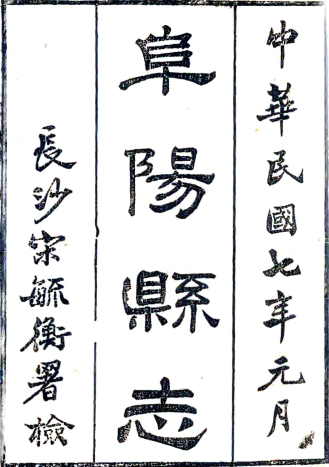 中華民國七年元月
阜陽縣志
長沙宋毓衡署檢